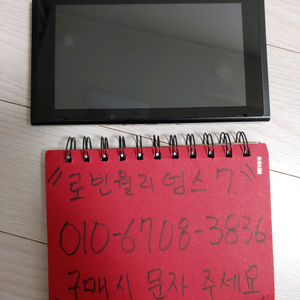 "로빈윌리엄스7"
010-6708-3836
구매시 문자 주세요